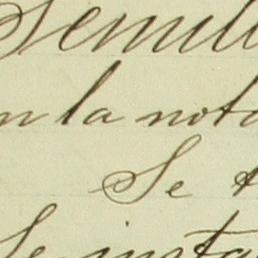 Semill
n la nota
Se t
Se insta